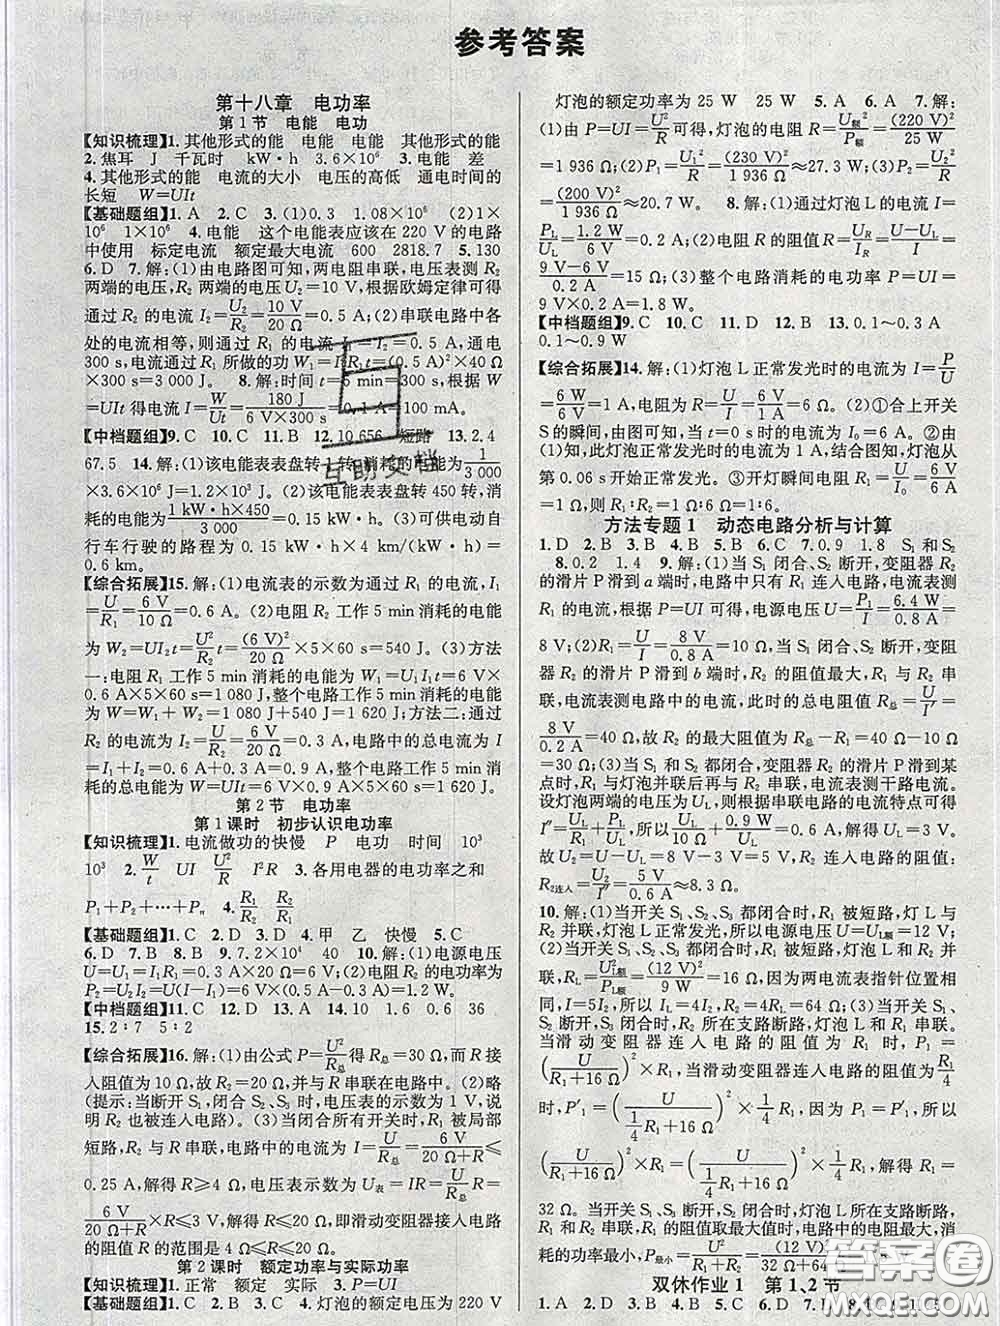 参考答案
第十八章 电功率
第1节 电能 电功
【知识梳理】1. 其他形式的能 电能 电能 其他形式的能
2. 焦耳 J 千瓦时 kW·h 3.6×10⁶ 3. 电能 差
4. 其他形式的能 电流的大小 电压的高低 通电时间的
长短 W=UIt
【基础题组】1. A 2. C 3. (1)0.3 1.08×10⁶ (2)1×
10⁶ 1×10⁶ 4. 电能 这个电能表应该在 220 V 的电路
中使用 标定电流 额定最大电流 600 2818.7 5. 130
6. D 7. 解:(1)由电路图可知,两电阻串联,电压表测 R₂
两端的电压,R₂ 两端的电压 U₂=10 V,根据欧姆定律可得
通过 R₂ 的电流 I₂=U₂/R₂=10 V/20 Ω=0.5 A;(2)串联电路中各
处的电流相等,则通过 R₁ 的电流 I₁=I₂=0.5 A,通电
300 s,电流通过 R₁ 所做的功 W₁=I²R₁t=(0.5 A)²×40 Ω
×300 s=3 000 J。 8. 解:时间 t=5 min=300 s,根据 W
=UIt 得电流 I=W/Ut=180 J/6 V×300 s=0.1 A=100 mA。
【中档题组】9. C 10. C 11. B 12. 10 656 短路 13. 2.4
67.5 14. 解:(1)该电能表表盘转 1 转,消耗的电能为1/3 000
kW·h=1.2×10³ J。(2)该电能表表盘转 450 转,消
耗的电能为1 kW·h×450/3 000=0.15 kW·h。(3)可供电动自
行车行驶的路程为 0.15 kW·h×4 km/(kW·h)=
0.6 km。
【综合拓展】15. 解:(1)电流表的示数为通过 R₁ 的电流,I₁
=U/R₁=6 V/10 Ω=0.6 A。(2)电阻 R₂ 工作 5 min 消耗的电能
为 W₂=UI₂t=U²/R₂t=(6 V)²/20 Ω×5×60 s=540 J。(3)方法
一:电阻 R₁ 工作 5 min 消耗的电能为 W₁=UI₁t=6 V×
0.6 A×5×60 s=1 080 J,整个电路工作 5 min 消耗的电能
为 W=W₁+W₂=1 080 J+540 J=1 620 J;方法二:通过
R₂ 的电流为 I₂=U/R₂=6 V/20 Ω=0.3 A,电路中的总电流为 I
=I₁+I₂=0.6 A+0.3 A=0.9 A,整个电路工作 5 min 消
耗的总电能为 W=UIt=6 V×0.9 A×5×60 s=1 620 J。
第2节 电功率
第1课时 初步认识电功率
【知识梳理】1. 电流做功的快慢 P 电功 时间 10³
10³ 2. W/t UI U²/R I²R 3. 各用电器的电功率之和
P₁+P₂+…+Pₙ 4. R₁/R₂ R₂/R₁
【基础题组】1. C 2. D 3. D 4. 甲 乙 快慢 5. C
6. D 7. B 8. B 9. 7.2×10⁴ 40 10. 解:(1)电源电压
U=U₁=I₁R₁=0.3 A×20 Ω=6 V。(2)电阻 R₂ 的电功率为
P₂=U₂I₂=U(I-I₁)=6 V×(0.5 A-0.3 A)=1.2 W。
【中档题组】11. C 12. D 13. A 14. 10 1.6 0.6 36
15. 2∶7 5∶2
【综合拓展】16. 解:(1)由公式 P=U²/R总得 R总=30 Ω,而 R 接
入阻值为 10 Ω,故 R₂=20 Ω,并与 R 串联在电路中。(2)略
(提示:当断开 S₁,闭合 S₂、S₃ 时,电压表的示数为 1 V,说
明 R₂ 也被连入电路)。(3)当闭合所有开关时,R₁ 被局部
短路,R₂ 与 R 串联,电路中的电流为 I=U/R总=6 V/20 Ω+R≤
0.25 A,解得 R≥4 Ω,电压表示数为 U表=IR=U/R总R=
6 V/20 Ω+R×R≤3 V,解得 R≤20 Ω,即滑动变阻器接入电路
的阻值 R 的范围是 4 Ω≤R≤20 Ω。
第2课时 额定功率与实际功率
【知识梳理】1. 正常 额定 实际 3. P=UI
【基础题组】1. C 2. C 3. C 4. 灯泡的额定电压为 220 V
灯泡的额定功率为 25 W 25 W 5. A 6. A 7. 解:
(1)由 P=UI=U²/R可得,灯泡的电阻 R=U额²/P额=(220 V)²/25 W=
1 936 Ω;(2)P₁=U₁²/R=(230 V)²/1 936 Ω≈27.3 W;P₂=U₂²/R
=(200 V)²/1 936 Ω≈20.7 W。 8. 解:(1)通过灯泡 L 的电流 I=
PL/UL=1.2 W/6 V=0.2 A;(2)电阻 R 的阻值 R=UR/IR=U-UL/I=
9 V-6 V/0.2 A=15 Ω;(3)整个电路消耗的电功率 P=UI=
9 V×0.2 A=1.8 W。
【中档题组】9. C 10. C 11. D 12. B 13. 0.1~0.3 A
0.1~0.9 W
【综合拓展】14. 解:(1)灯泡 L 正常发光时的电流 I=P/U
=6 W/6 V=1 A,电阻 R=U/I=6 V/1 A=6 Ω。(2)①合上开关
S的瞬间,由图可知,当 t=0 s 时的电流为 I₀=6 A。②由
(1)知,此灯泡正常发光时的电流为 1 A。结合图知,灯泡从
第 0.06 s 开始正常发光。③开灯瞬间,灯丝电阻 R₀=U/I₀=6 V/6 A
=1 Ω,则 R₀∶R=1 Ω∶6 Ω=1∶6。
方法专题1 动态电路分析与计算
1. D 2. B 3. B 4. B 5. B 6. C 7. 0.9 1.8 S₁ 和 S₂
8. 0.2 1.4 9. 解:(1)当 S₁ 闭合、S₂、S₃ 断开,变阻器 R₂
的滑片 P滑到 a 端时,电路中只有 R₁ 连入电路,电流表测
R₁ 的电流,根据 P=UI 可得,电源电压 U=P₁/I=6.4 W/0.8 A=
8 V;(2)R₁=U/I=8 V/0.8 A=10 Ω,当 S₁ 闭合、S₂、S₃ 断开,变阻
器 R₂ 的滑片 P 滑到 b 端时,R₂ 的阻值最大,R₁ 与 R₂ 串
联,电流表测电路中的电流,此时的总电阻值 R总=U/I′=
8 V/0.2 A=40 Ω,故 R₂ 的最大阻值为 R总-R₁=40 Ω-10 Ω
=30 Ω;(3)当 S₁、S₂ 和 S₃ 都闭合,变阻器 R₂ 的滑片 P滑到某
点时,R₁ 与灯泡并联后再与 R₂ 串联,电流表测干路电流。
设灯泡两端的电压为 UL,则根据串联电路的电流特点可得
I″=UL/R₁+PL/UL,所以UL/10 Ω+0.9 W/UL=0.6 A,解得 UL=3 V。
故 U₂=U-UL=8 V-3 V=5 V,R₂ 连入电路的阻值:
R₂连入=U₂/I″=5 V/0.6 A≈8.3 Ω。
10. 解:(1)当开关 S₁、S₂、S₃ 都闭合时,R₁ 被短路,灯 L 与
R₂ 并联,灯泡 L 正常发光,所以电源电压 U=UL额=12 V;
(2)当开关 S₁、S₂、S₃ 都闭合时,灯泡 L 和 R₂ 并联,灯泡 L
的阻值,RL=UL额²/PL额=(12 V)²/9 W=16 Ω,因为两电流表指针位置相
同,I=5I₂,所以 IL=4I₂,R₂=4RL=64 Ω;(3)当开关 S₁、
S₂ 断开,S₃ 闭合时,R₂ 所在支路断路,灯泡 L 和 R₁ 串联。
当滑动变阻器连入电路的电阻为 R₁ 时,P₁=
(U/R₁+16 Ω)²×R₁,当滑动变阻器连入电路的电阻为1/4R₁
时,P′₁=(U/1/4R₁+16 Ω)²×1/4R₁,因为 P₁=P′₁,所以
(U/R₁+16 Ω)²×R₁=(U/1/4R₁+16 Ω)²×1/4R₁,解得 R₁=
32 Ω。当 S₁、S₃ 断开,S₂ 闭合时,灯泡 L 所在支路断路,
R₁ 和 R₂ 串联,R₁ 的阻值取最大值时,电路中的电流最小,
消耗的功率最小,P最小=U²/R₁+R₂=(12 V)²/32 Ω+64 Ω
双休作业1 第1、2节
1. A 2. D 3. B 4. C 5. C 6. D 7. D
互助文档
答案圈
MXQE.COM